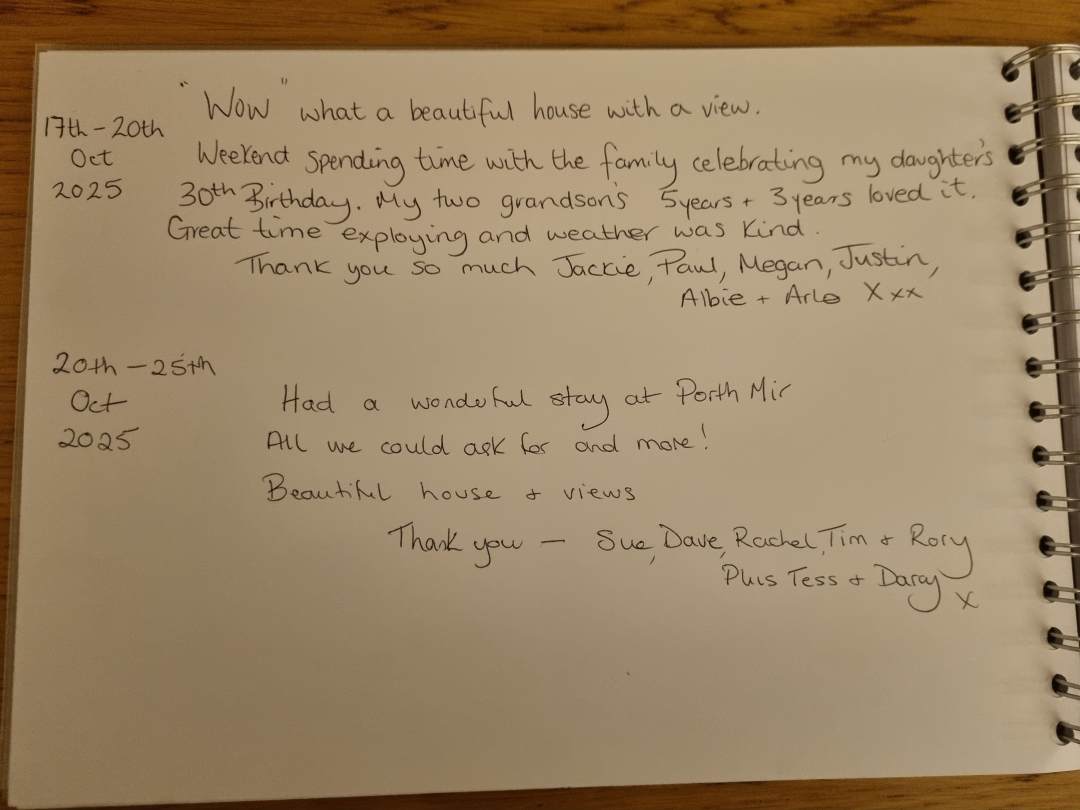 "Wow" what a beautiful house with a view.
17th - 20th
Oct
2025
Weekend spending time with the family celebrating my daughter's
30th Birthday. My two grandson's 5years + 3years loved it.
Great time exploying and weather was kind.
Thank you so much Jackie, Paul, Megan, Justin,
Albie + Arlo X x x
20th - 25th
Oct
2025
Had a wonderful stay at Porth Mir
All we could ask for and more!
Beautiful house + views
Thank you - Sue, Dave, Rachel, Tim + Rory
Plus Tess + Darcy x